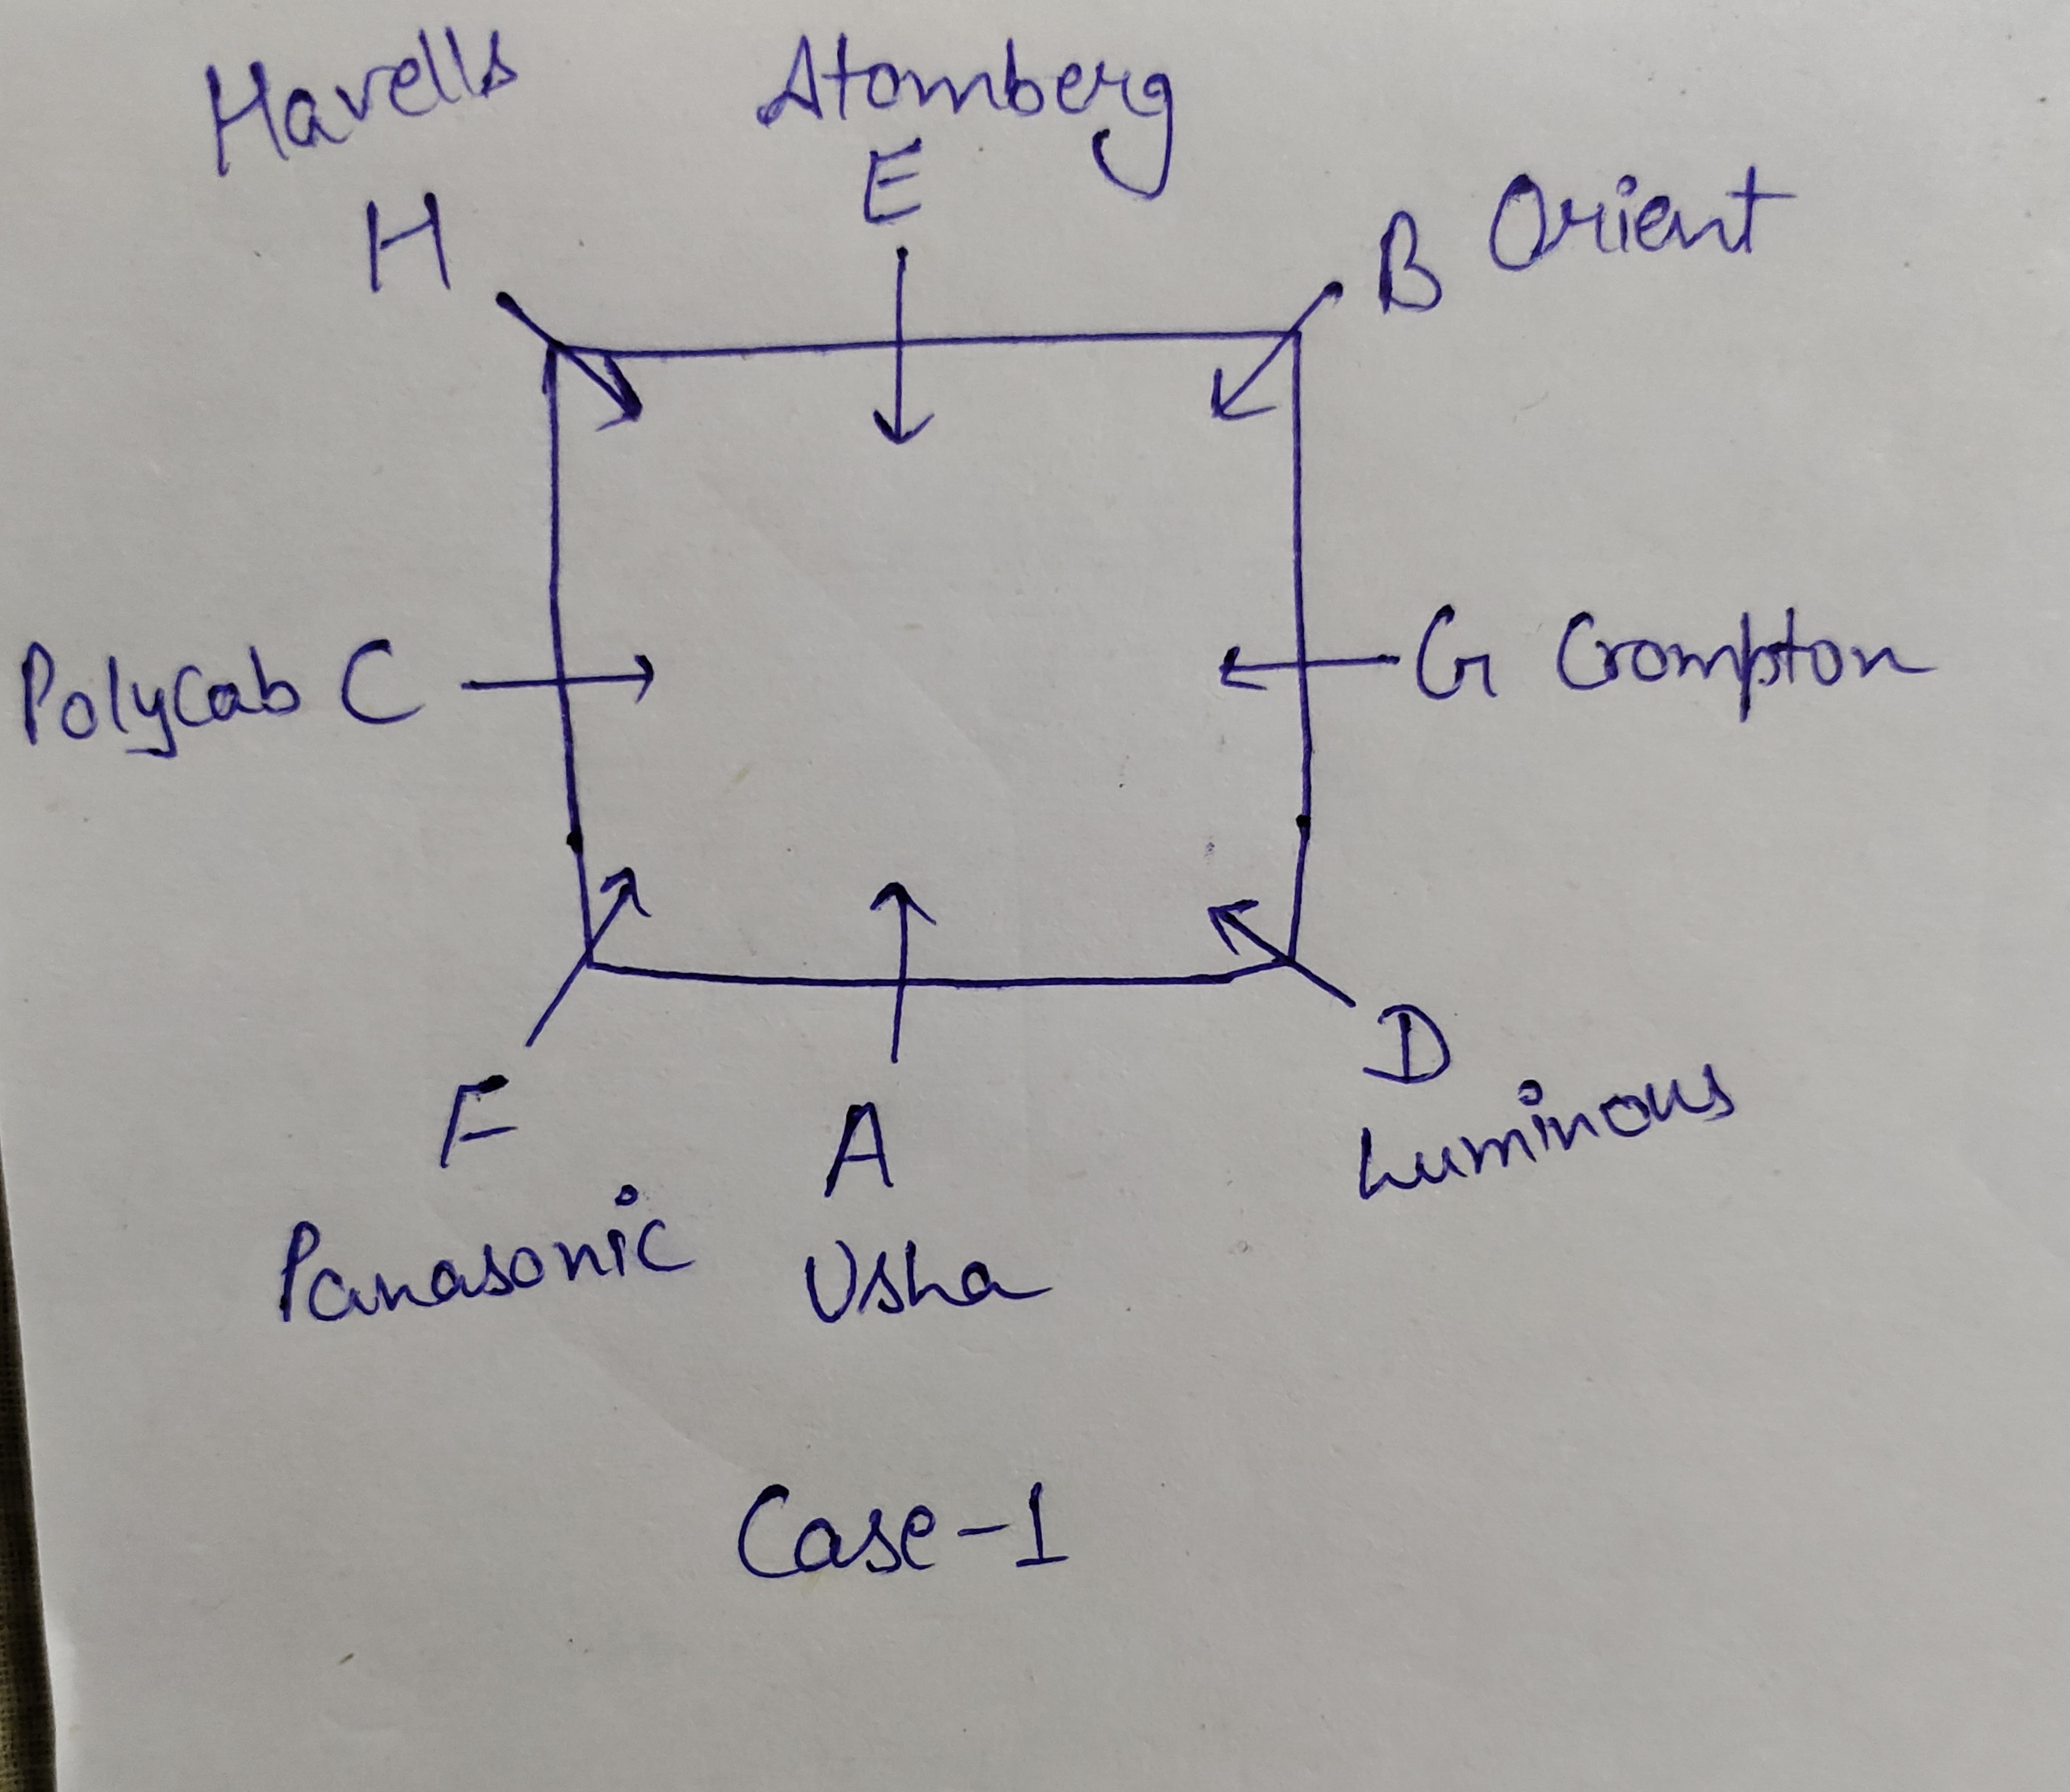 Havells
Atomberg
H
E
B Orient
Polycab C
G Crompton
F
A
D
Panasonic
Usha
Luminous
Case-1